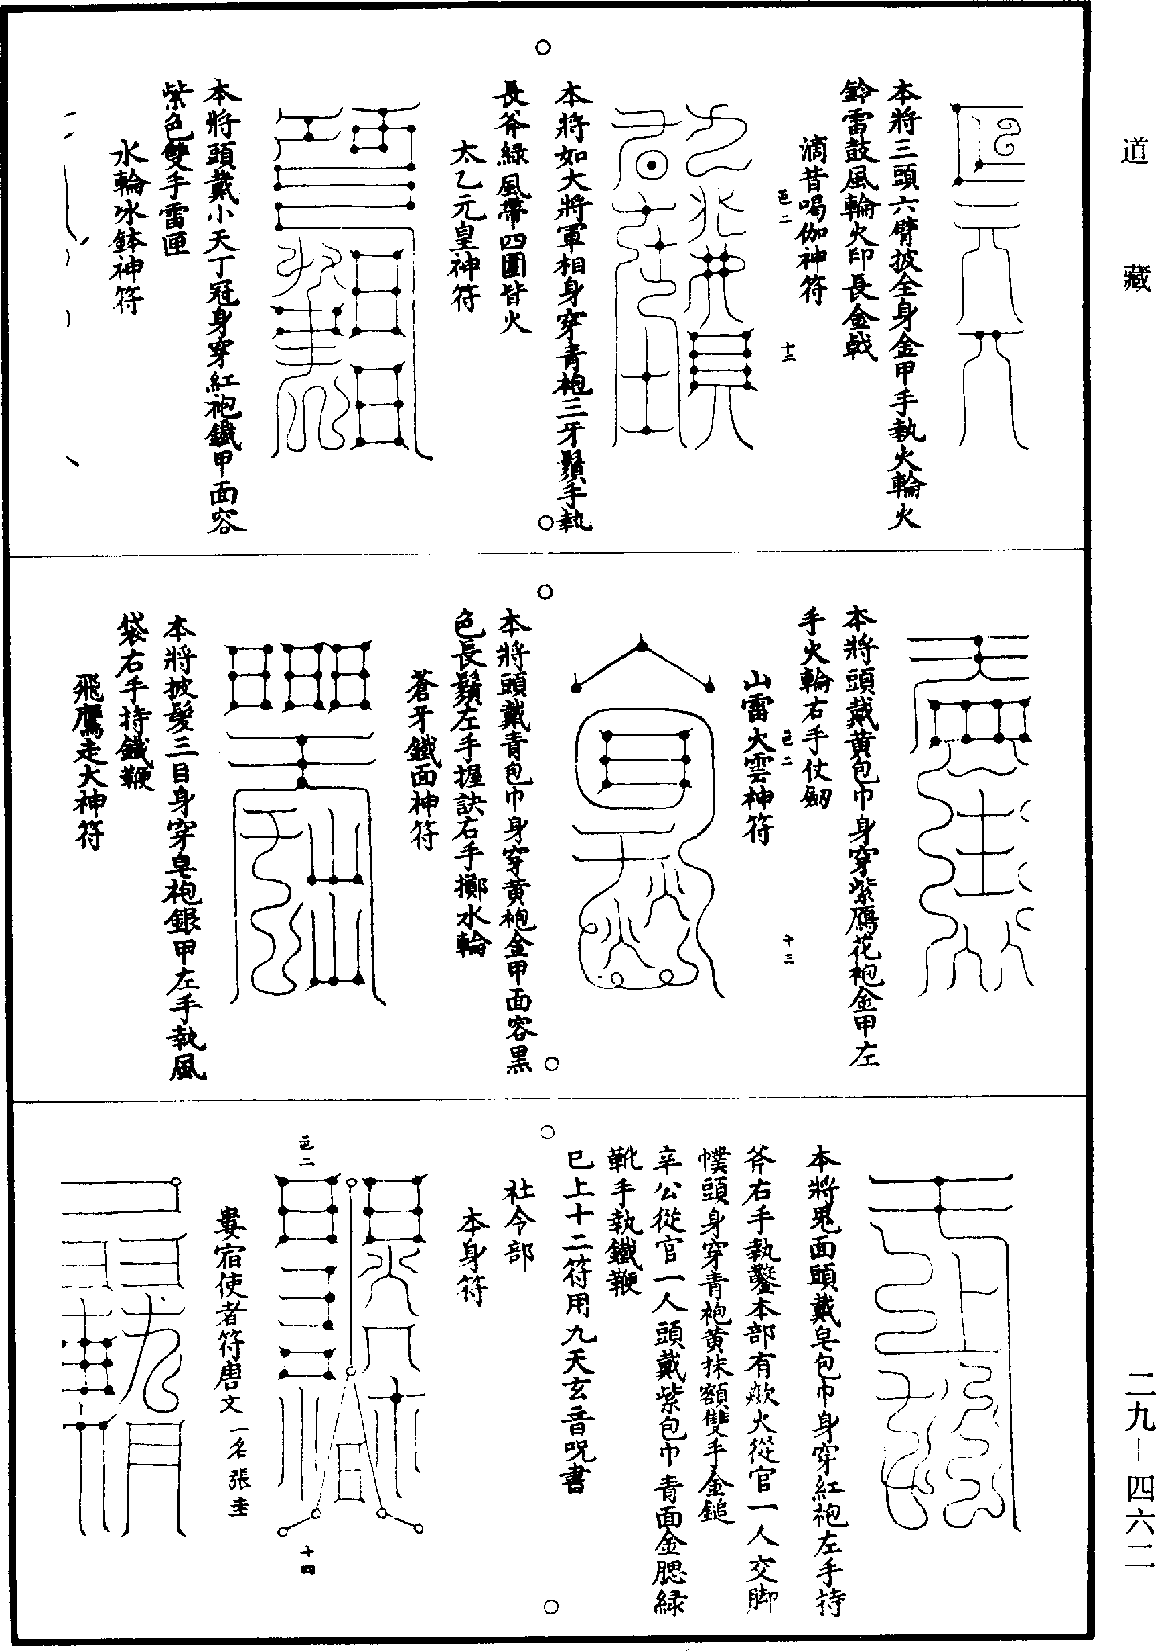 道藏
本將三頭六臂披全身金甲手執火輪火
鈴雷鼓風輪火印長金戟
滴昔喝伽神符
邑二
十二
本將如大將軍相身穿青袍三牙鬚手執
長斧緑風帶四圍皆火
太乙元皇神符
本將頭戴小天丁冠身穿紅袍鐵甲面容
紫色雙手雷匣
水輪冰鉢神符
本將頭戴黄包巾身穿紫鴈花袍金甲左
手火輪右手仗劒
山雷火雲神符
邑二
十三
本將頭戴青包巾身穿黄袍金甲面容黒
色長鬚左手握訣右手擲水輪
蒼牙鐵面神符
本將披髮三目身穿皂袍銀甲左手執風
袋右手持鐵鞭
飛鷹走犬神符
本將鬼面頭戴皂包巾身穿紅袍左手持
斧右手執鑿本部有歘火從官一人交脚
幞頭身穿青袍黄抹額雙手金鎚
辛公從官一人頭戴紫包巾青面金腮緑
靴手執鐵鞭
已上十二符用九天玄音呪書
社令部
本身符
邑二
十四
婁宿使者符唐文一名張圭
二九—四六二